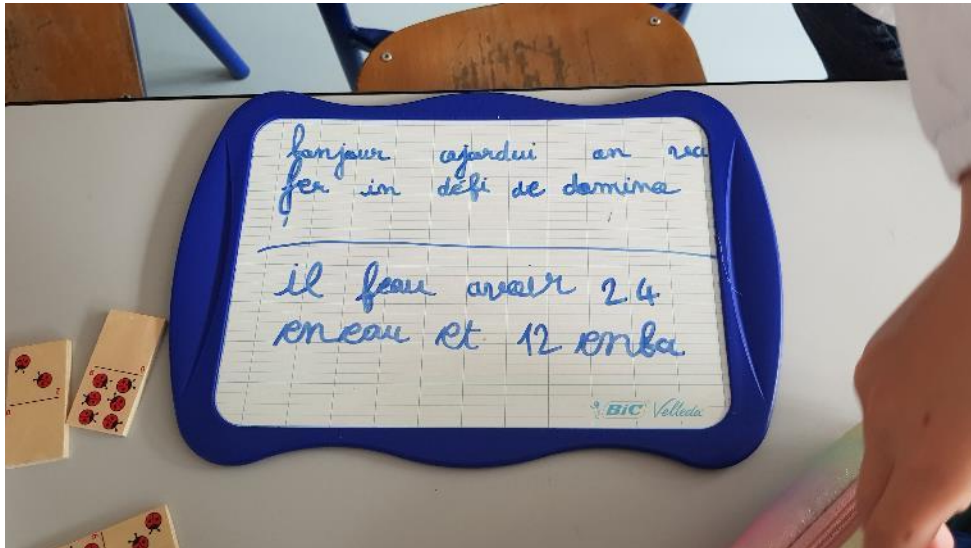 bonjour ajardui on va
fer in défi de domino
!
il feau avoir 24
eneau et 12 enba
BIC Velleda